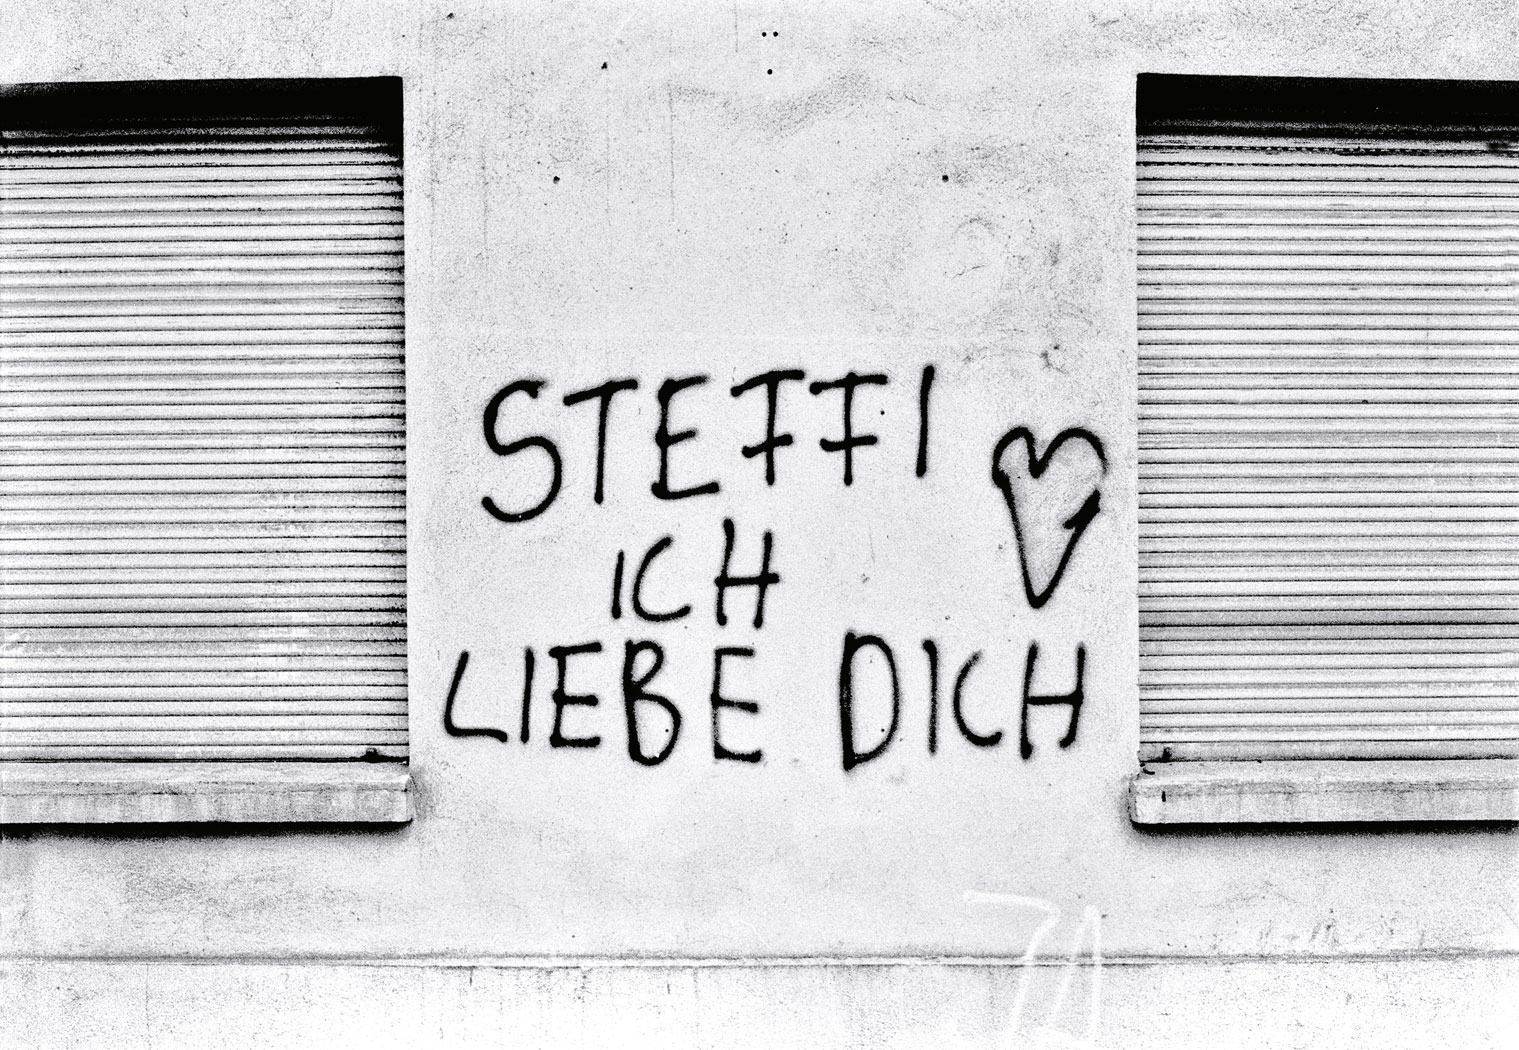 STEFFI
ICH
LIEBE DICH